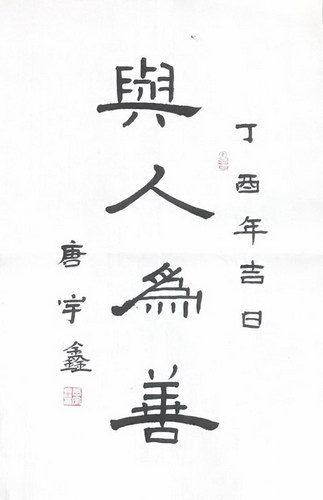 丁酉年吉日
與人為善
唐宇鑫